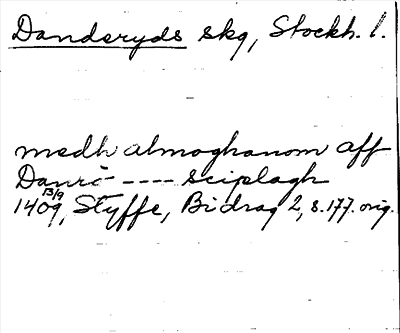 Danderyds skg, Stockh. l.
medh almoghanom aff
Danrö ---- sciplagh
13/9
1409, Styffe, Bidrag 2, s.177. orig.